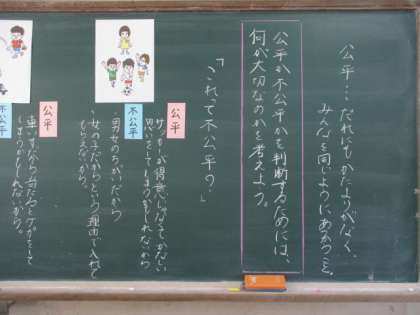 公平…だれにもかたよりがなく、
みんなを同じようにあつかうこと。
公平か不公平かを判断するためには、
何が大切なのかを考えよう。
「これって不公平の？」
公平
サッカーが得意じゃなくてかなしい
思いをしてしまうかもしれないから
不公平
男女のちがいだから
女の子だからという理由で入れて
もらえないから。
公平
車いすだから
しまうかもしれないから。
不公平